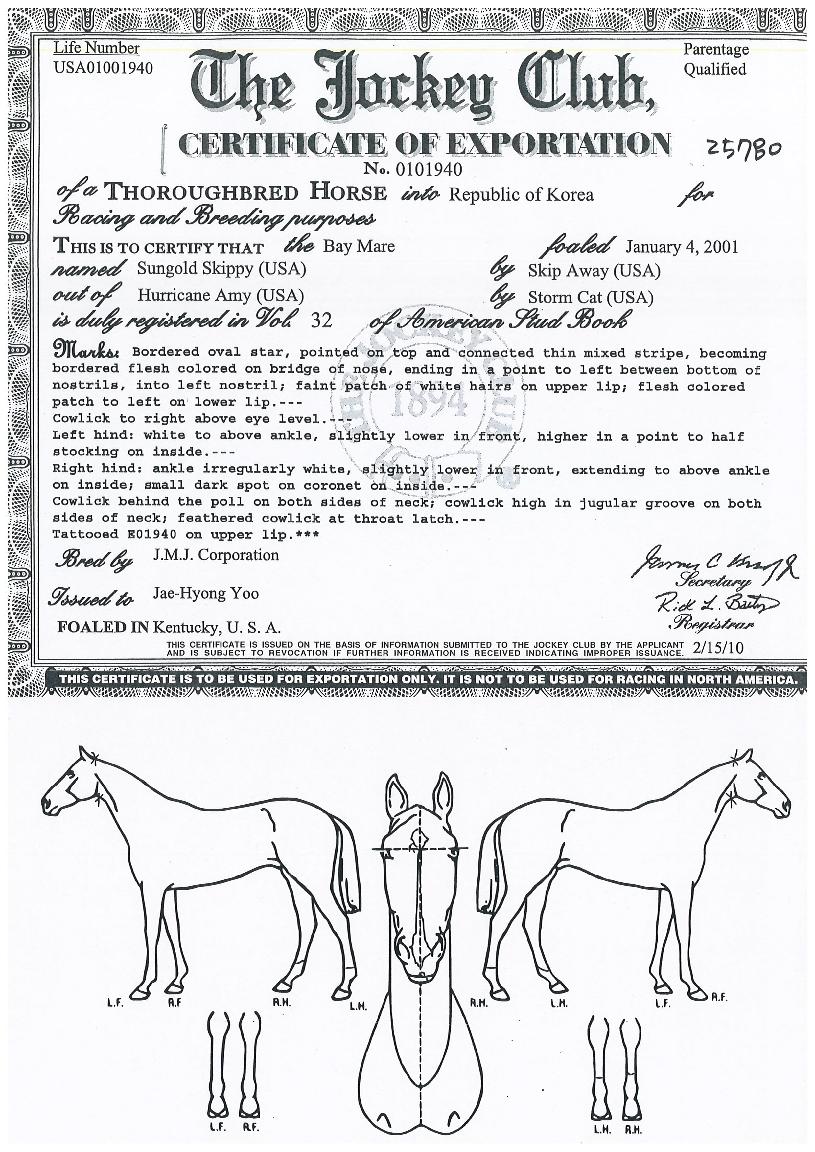 Life Number
USA01001940
Parentage
Qualified
The Jockey Club,
CERTIFICATE OF EXPORTATION
25780
No. 0101940
of a THOROUGHBRED HORSE into Republic of Korea for
Racing and Breeding purposes
THIS IS TO CERTIFY THAT the Bay Mare foaled January 4, 2001
named Sungold Skippy (USA) by Skip Away (USA)
out of Hurricane Amy (USA) by Storm Cat (USA)
is duly registered in Vol. 32 of American Stud Book
Marks: Bordered oval star, pointed on top and connected thin mixed stripe, becoming
bordered flesh colored on bridge of nose, ending in a point to left between bottom of
nostrils, into left nostril; faint patch of white hairs on upper lip; flesh colored
patch to left on lower lip.---
Cowlick to right above eye level.---
Left hind: white to above ankle, slightly lower in front, higher in a point to half
stocking on inside.---
Right hind: ankle irregularly white, slightly lower in front, extending to above ankle
on inside; small dark spot on coronet on inside.---
Cowlick behind the poll on both sides of neck; cowlick high in jugular groove on both
sides of neck; feathered cowlick at throat latch.---
Tattooed E01940 on upper lip.***
THE JOCKEY CLUB
1894
Bred by J.M.J. Corporation
Secretary
Issued to Jae-Hyong Yoo
Registrar
FOALED IN Kentucky, U. S. A.
THIS CERTIFICATE IS ISSUED ON THE BASIS OF INFORMATION SUBMITTED TO THE JOCKEY CLUB BY THE APPLICANT
AND IS SUBJECT TO REVOCATION IF FURTHER INFORMATION IS RECEIVED INDICATING IMPROPER ISSUANCE. 2/15/10
THIS CERTIFICATE IS TO BE USED FOR EXPORTATION ONLY. IT IS NOT TO BE USED FOR RACING IN NORTH AMERICA.
L.F. R.F R.H. L.H. R.H. L.H. L.F. R.F.
L.F. R.F. L.H. R.H.